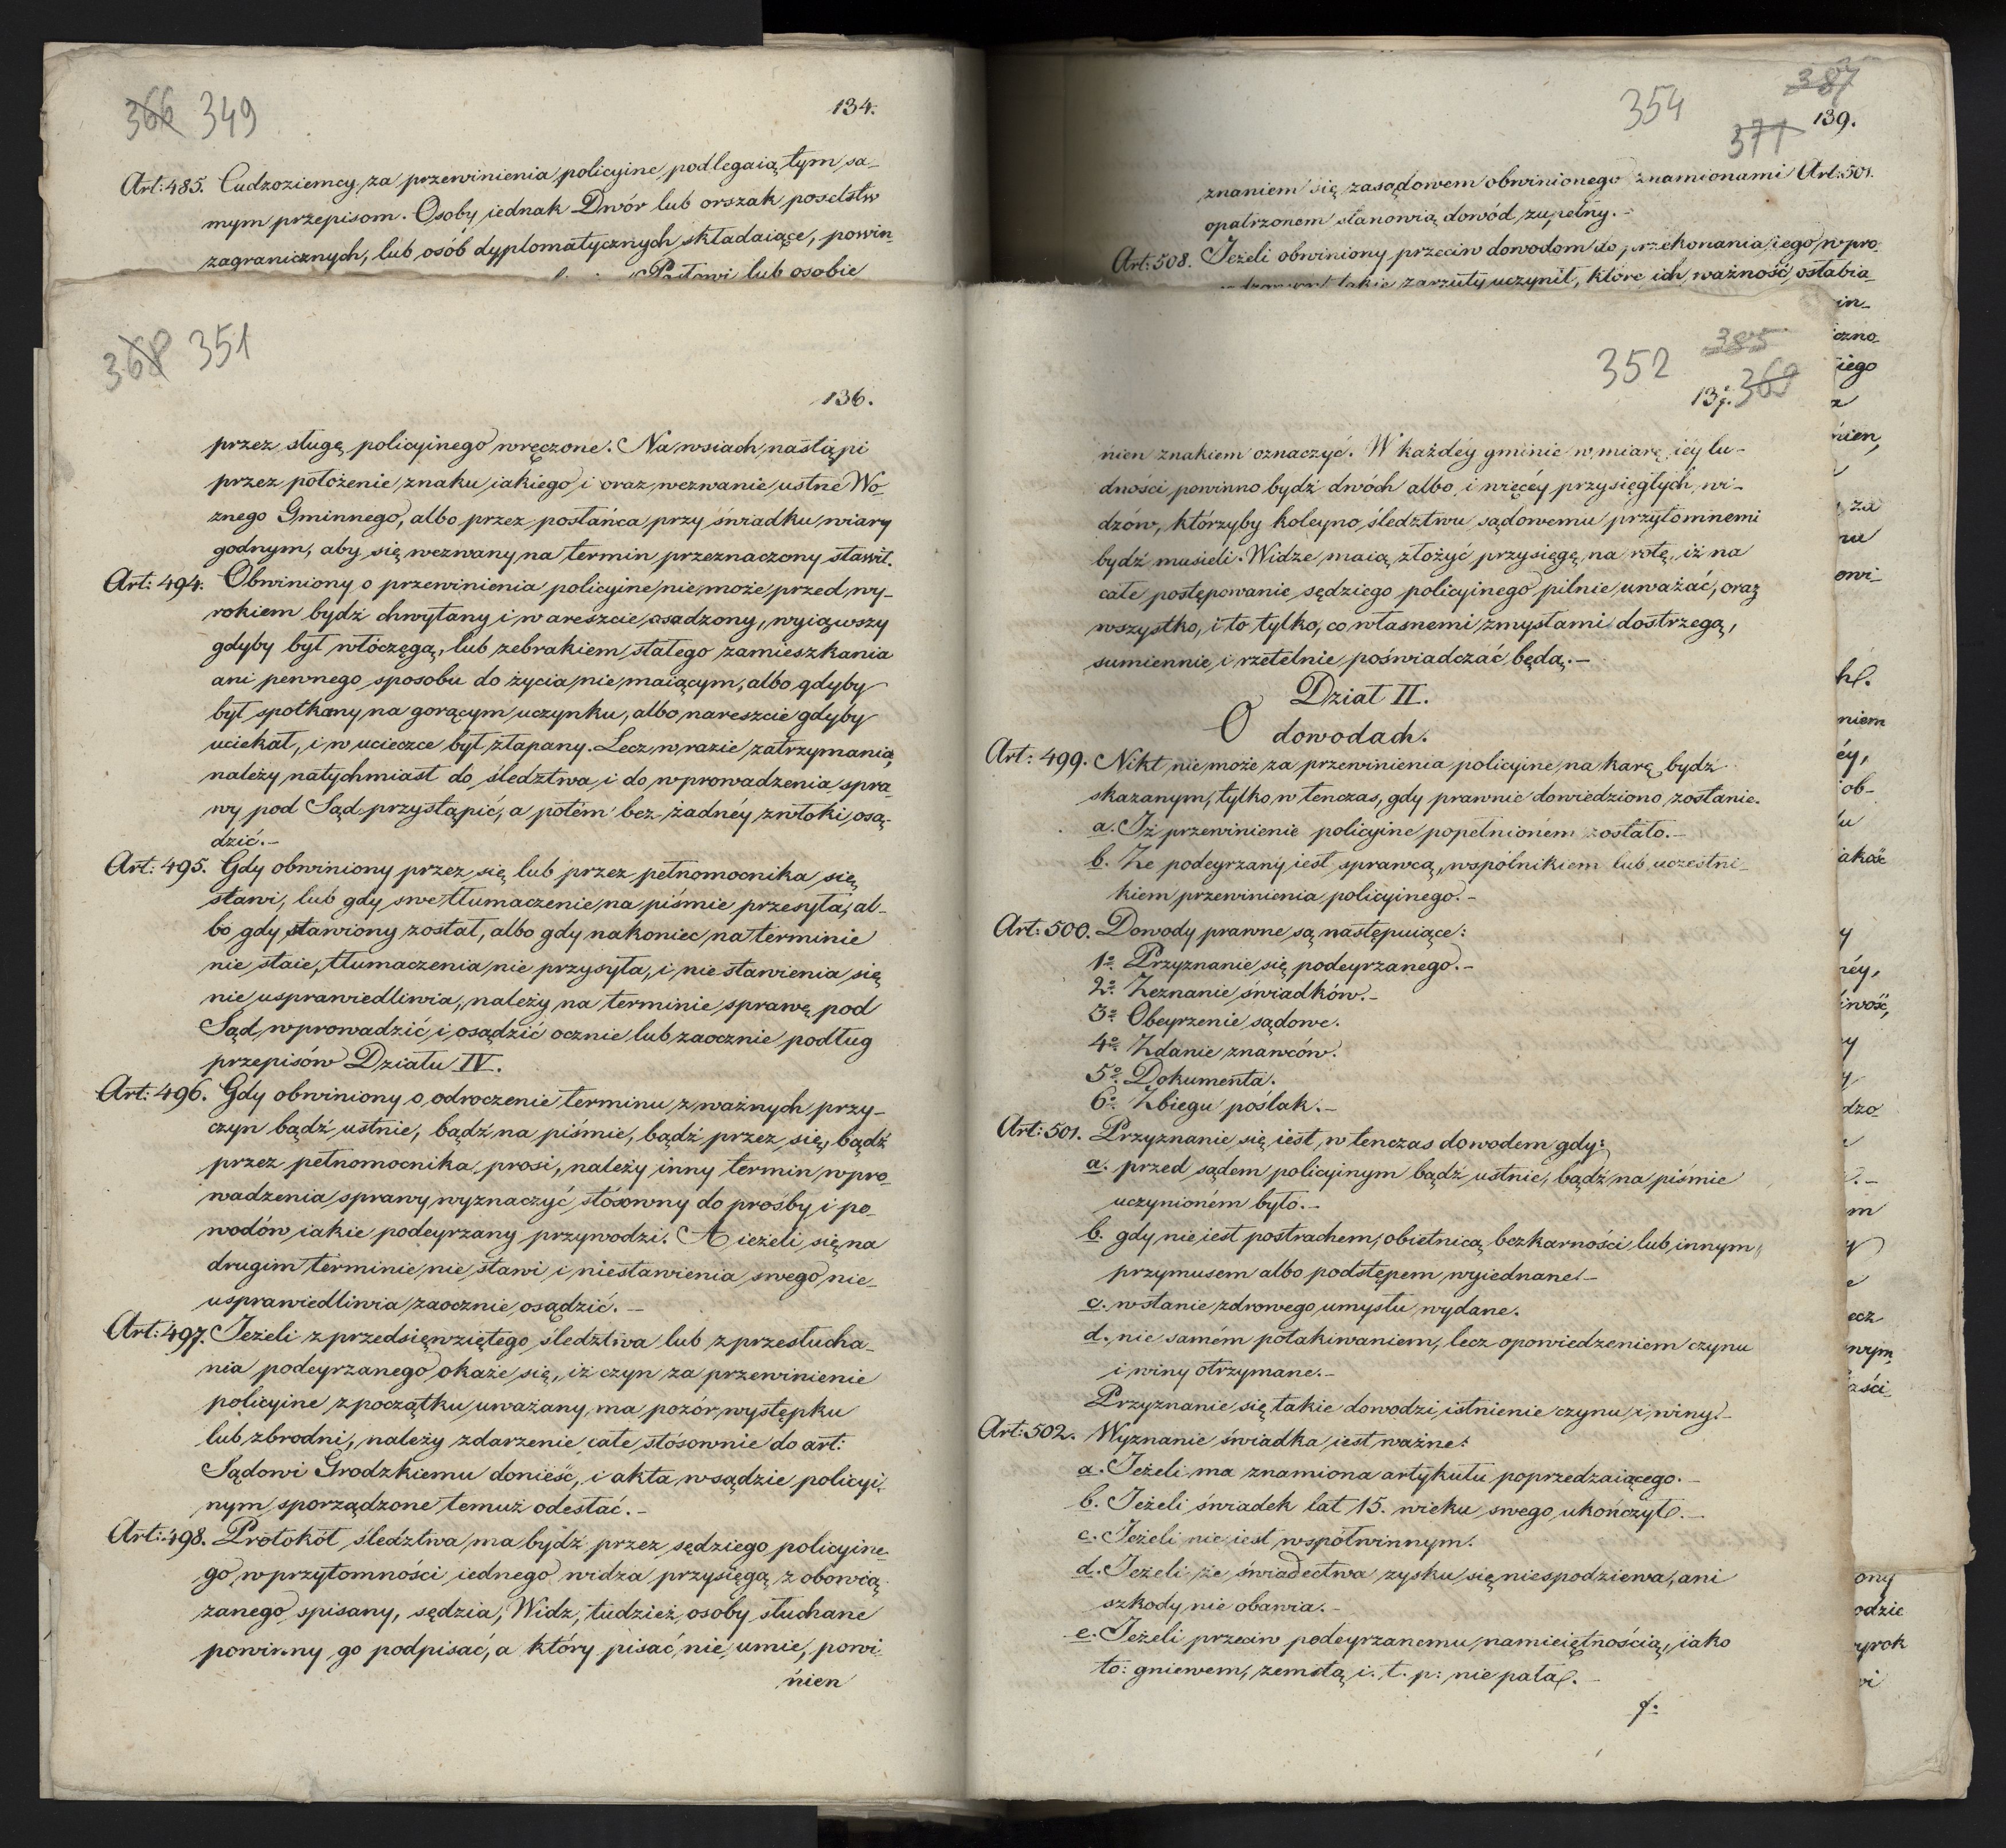 366 349
134.
Art: 485. Cudzoziemcy za przewinienia policyine podlegaią tym sa-
mym przepisom. Osoby iednak Dwór lub orszak poselstw
zagranicznych, lub osób dyplomatycznych składaiące, powin-
lub osobie
368 351
136.
przez sługę policyinego wręczone. Na wsiach nastąpi
przez położenie znaku iakiego i oraz wezwanie ustne Wo-
znego Gminnego, albo przez posłańca przy świadku wiary
godnym, aby się wezwany na termin przeznaczony stawił.
Art: 494. Obwiniony o przewinienia policyine nie może przed wy-
rokiem bydź chwytany i w areszcie osadzony, wyiąwszy
gdyby był włóczęgą, lub żebrakiem stałego zamieszkania
ani pewnego sposobu do życia nie maiącym, albo gdyby
był spotkany na gorącym uczynku, albo nareszcie gdyby
uciekał, i w ucieczce był złapany. Lecz w razie zatrzymania,
należy natychmiast do śledztwa i do wprowadzenia spra-
wy pod Sąd przystąpić, a potém bez żadnéy zwłoki osą-
dzić.-
Art: 495. Gdy obwiniony przez się lub przez pełnomocnika się
stawi, lub gdy swe tłumaczenie na piśmie przesyła, al-
bo gdy stawiony został, albo gdy nakoniec na terminie
nie staie, tłumaczenia nie przysyła, i nie stawienia się
nie usprawiedliwia, należy na terminie sprawę pod
Sąd wprowadzić i osądzić ocznie lub zaocznie podług
przepisów Działu IV.
Art: 496. Gdy obwiniony o odroczenie terminu z ważnych przy-
czyn bądź ustnie, bądź na piśmie, bądź przez się, bądź
przez pełnomocnika prosi, należy inny termin wpro-
wadzenia sprawy wyznaczyć stósowny do prośby i po-
wodów iakie podeyrzany przywodzi. A ieżeli się na
drugim terminie nie stawi i niestawienia swego nie-
usprawiedliwia zaocznie osądzić. -
Art: 497. Jeżeli z przedsięwziętego śledztwa lub z przesłucha-
nia podeyrzanego okaże się, iż czyn za przewinienie
policyine z początku uważany, ma pozór występku
lub zbrodni, należy zdarzenie całe stósownie do art:
Sądowi Grodzkiemu donieść, i akta w sądzie policyi-
nym sporządzone temuż odesłać. -
Art: 498. Protokół śledztwa ma bydź przez sędziego policyine-
go w przytomności iednego widza przysięgą zobowią-
zanego spisany, sędzia, Widz, tudzież osoby słuchane
powinny go podpisać, a który pisać nie umie, powi-
nien
354 387
377 139.
znaniem się zasądowem obwinionego znamionami Art: 501.
opatrzonem stanowią dowód zupełny. -
Art: 508. Jeżeli obwiniony przeciw dowodom do przekonania iego wpro-
takie zarzuty uczynił, które ich ważność osłabia-
352 385
137. 369
nien znakiem oznaczyć. W każdéy gminie w miarę iéy lu-
dności powinno bydź dwóch albo i więcéy przysięgłych wi-
dzów, którzyby koleyno śledztwu sądowemu przytomnemi
bydź musieli. Widze maią złożyć przysięgę na rotę, iż na
całe postępowanie sędziego policyinego pilnie uważać, oraz
wszystko, i to tylko, co własnemi zmysłami dostrzegą,
sumiennie i rzetelnie poświadczać będą. -
Dział II.
O dowodach.
Art: 499. Nikt nie może za przewinienia policyine na karę bydź
skazanym, tylko w tenczas, gdy prawnie dowiedziono zostanie.
a. Iż przewinienie policyine popełnioném zostało. -
b. Że podeyrzany iest sprawcą, wspólnikiem lub uczestni-
kiem przewinienia policyinego. -
Art: 500. Dowody prawne są następuiące:
1º. Przyznanie się podeyrzanego. -
2º. Zeznanie świadków. -
3º. Obeyrzenie sądowe.
4º. Zdanie znawców.
5º. Dokumenta.
6º. Zbiegu poślak. -
Art: 501. Przyznanie się iest w tenczas dowodem gdy:
a. przed sądem policyinym bądź ustnie, bądź na piśmie
uczynioném było. -
b. gdy nie iest postrachem, obietnicą bezkarności lub innym
przymusem albo podstępem wyiednane. -
c. w stanie zdrowego umysłu wydane.
d. nie samém potakiwaniem, lecz opowiedzeniem czynu
i winy otrzymane. -
Przyznanie się takie dowodzi istnienie czynu i winy. -
Art: 502. Wyznanie świadka iest ważne:
a. Jeżeli ma znamiona artykułu poprzedzaiącego. -
b. Jeżeli świadek lat 15. wieku swego ukończył. -
c. Jeżeli nie iest współwinnym.
d. Jeżeli ze świadectwa zysku się niespodziewa, ani
szkody nie obawia. -
e. Jeżeli przeciw podeyrzanemu namieiętnością, iako
to: gniewem, zemstą i. t. p: nie pała. -
f.
in-
iczno-
iego
nien,
za
owi-
niem
éy,
ob-
iakość
y
néy,
iwość,
y
dzo
m
ecz
wym
ości
ony
odzie
yrok